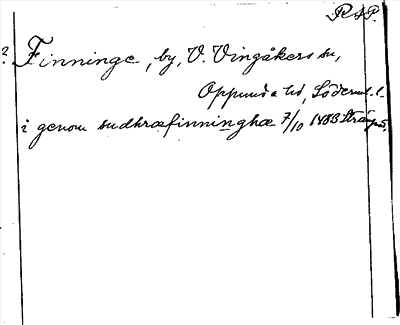 RAP.
? Finninge, by, V. Vingåkers sn,
Oppunda hd, Söderml. l.
i genom sudhræfinninghæ 7/10 1483 Strängnäs,